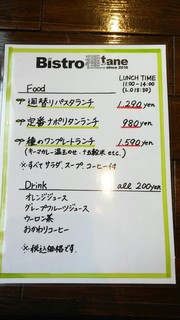 Bistro 種tane
since 2016
LUNCH TIME
11:00-14:00
(L.O 13:30)
Food
週替りパスタランチ 1,290yen
定番ナポリタンランチ 980yen
種のワンプレートランチ 1,590yen
(キーマカレー 温玉のせ、十五穀米 etc.)
※すべてサラダ、スープ、コーヒー付
Drink all 200yen
オレンジジュース
グレープフルーツジュース
ウーロン茶
おかわりコーヒー
※税込価格です。